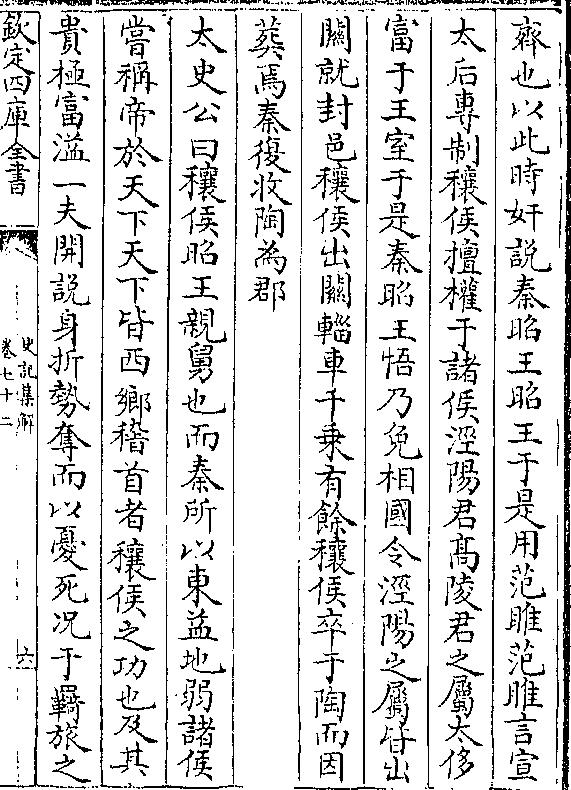 齊也以此時奸說秦昭王昭王于是用范雎范雎言宣
太后專制穰侯擅權于諸侯涇陽君髙陵君之屬太侈
富于王室于是秦昭王悟乃免相國令涇陽之屬皆出
關就封邑穰侯出關輜車千乗有餘穰侯卒于陶而因
葬焉秦復收陶為郡
太史公曰穰侯昭王親舅也而秦所以東益地弱諸侯
嘗稱帝於天下天下皆西鄉稽首者穰侯之功也及其
貴極富溢一夫開說身折勢奪而以憂死况于羈旅之
欽定四庫全書
史記集解
卷七十二
六